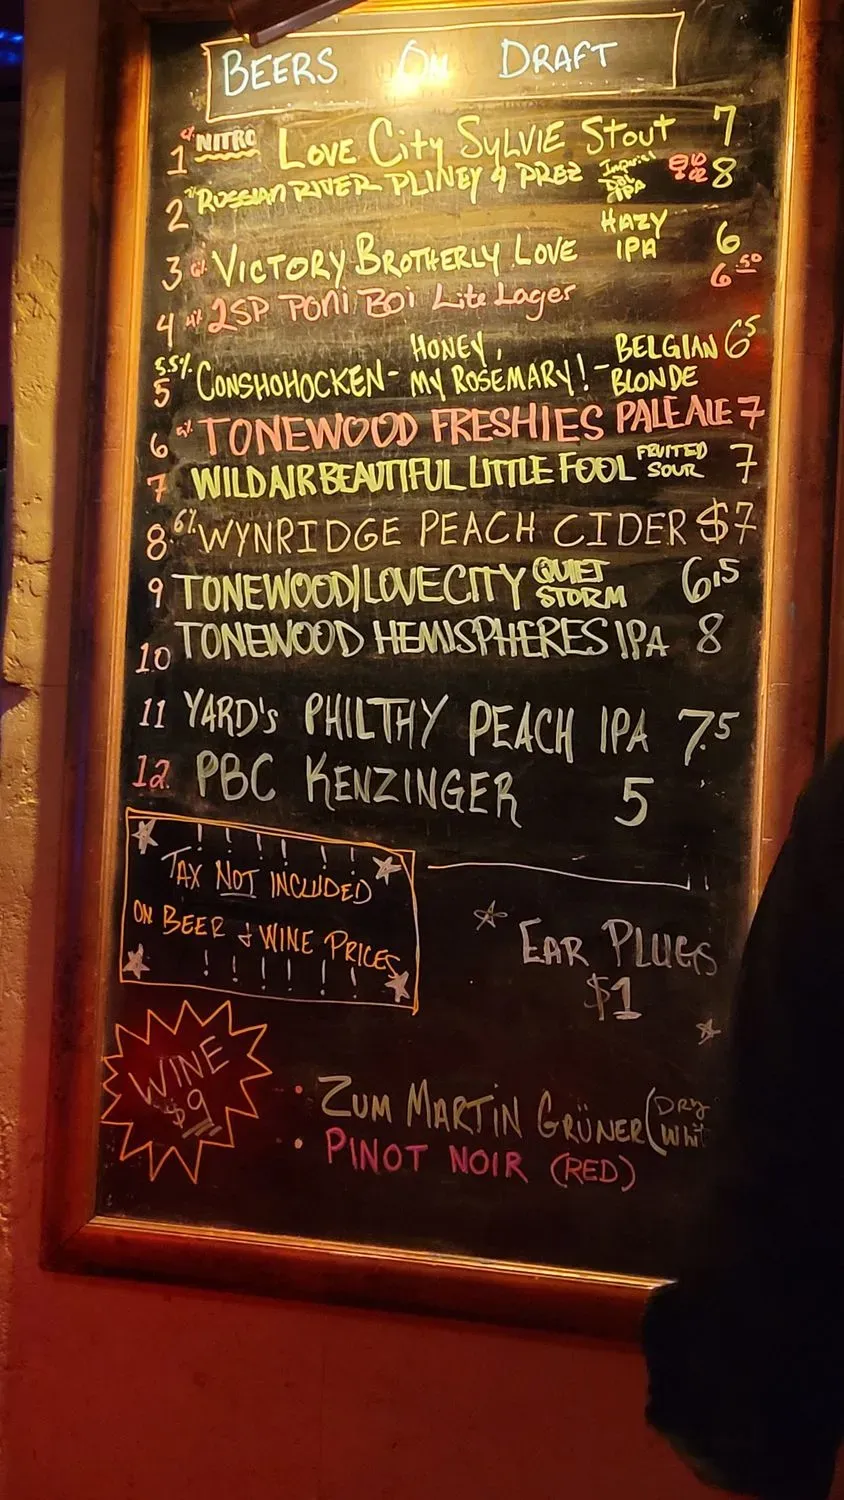 BEERS ON DRAFT
1 NITRO LOVE CITY SYLVIE STOUT 7
2 RUSSIAN RIVER PLINEY 4 PREZ Imperial IPA 8
3 VICTORY BROTHERLY LOVE HAZY IPA 6
4 2SP PONI BOI Lite Lager 6.50
5.5% 5 CONSHOHOCKEN - HONEY, MY ROSEMARY! - BELGIAN BLONDE 6.5
6 TONEWOOD FRESHIES PALE ALE 7
7 WILD AIR BEAUTIFUL LITTLE FOOL FRUITED SOUR 7
8. 6% WYNRIDGE PEACH CIDER $7
9 TONEWOOD/LOVECITY QUIET STORM 6.5
10 TONEWOOD HEMISPHERES IPA 8
11 YARD'S PHILTHY PEACH IPA 7.5
12. PBC KENZINGER 5
! ! ! ! ! !
TAX NOT INCLUDED
ON BEER & WINE PRICES
! ! ! ! ! !
EAR PLUGS
$1
WINE
$9
• ZUM MARTIN GRÜNER (DRY
Whit
• PINOT NOIR (RED)